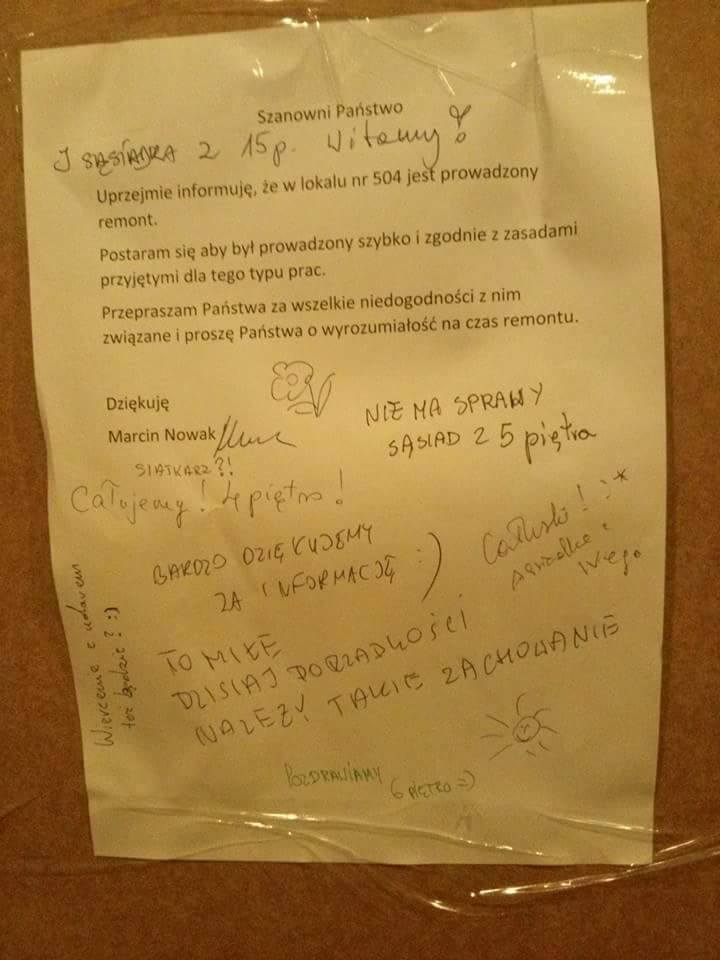 Szanowni Państwo
I SĄSIADKA Z 15 p. Witamy!
Uprzejmie informuję, że w lokalu nr 504 jest prowadzony
remont.
Postaram się aby był prowadzony szybko i zgodnie z zasadami
przyjętymi dla tego typu prac.
Przepraszam Państwa za wszelkie niedogodności z nim
związane i proszę Państwa o wyrozumiałość na czas remontu.
Dziękuję
Marcin Nowak
NIE MA SPRAWY
SĄSIAD Z 5 piętra
SIATKARZ?!
Całujemy! 4 piętro!
BARDZO DZIĘKUJEMY
ZA INFORMACJĘ :)
Całuski! :*
sąsiadka z
IV-ego
Wiercenie z udarem
też będzie? :)
TO MIŁE
DZISIAJ DO RZADKOŚCI
NALEŻY TAKIE ZACHOWANIE
POZDRAWIAMY
6 PIĘTRO =)